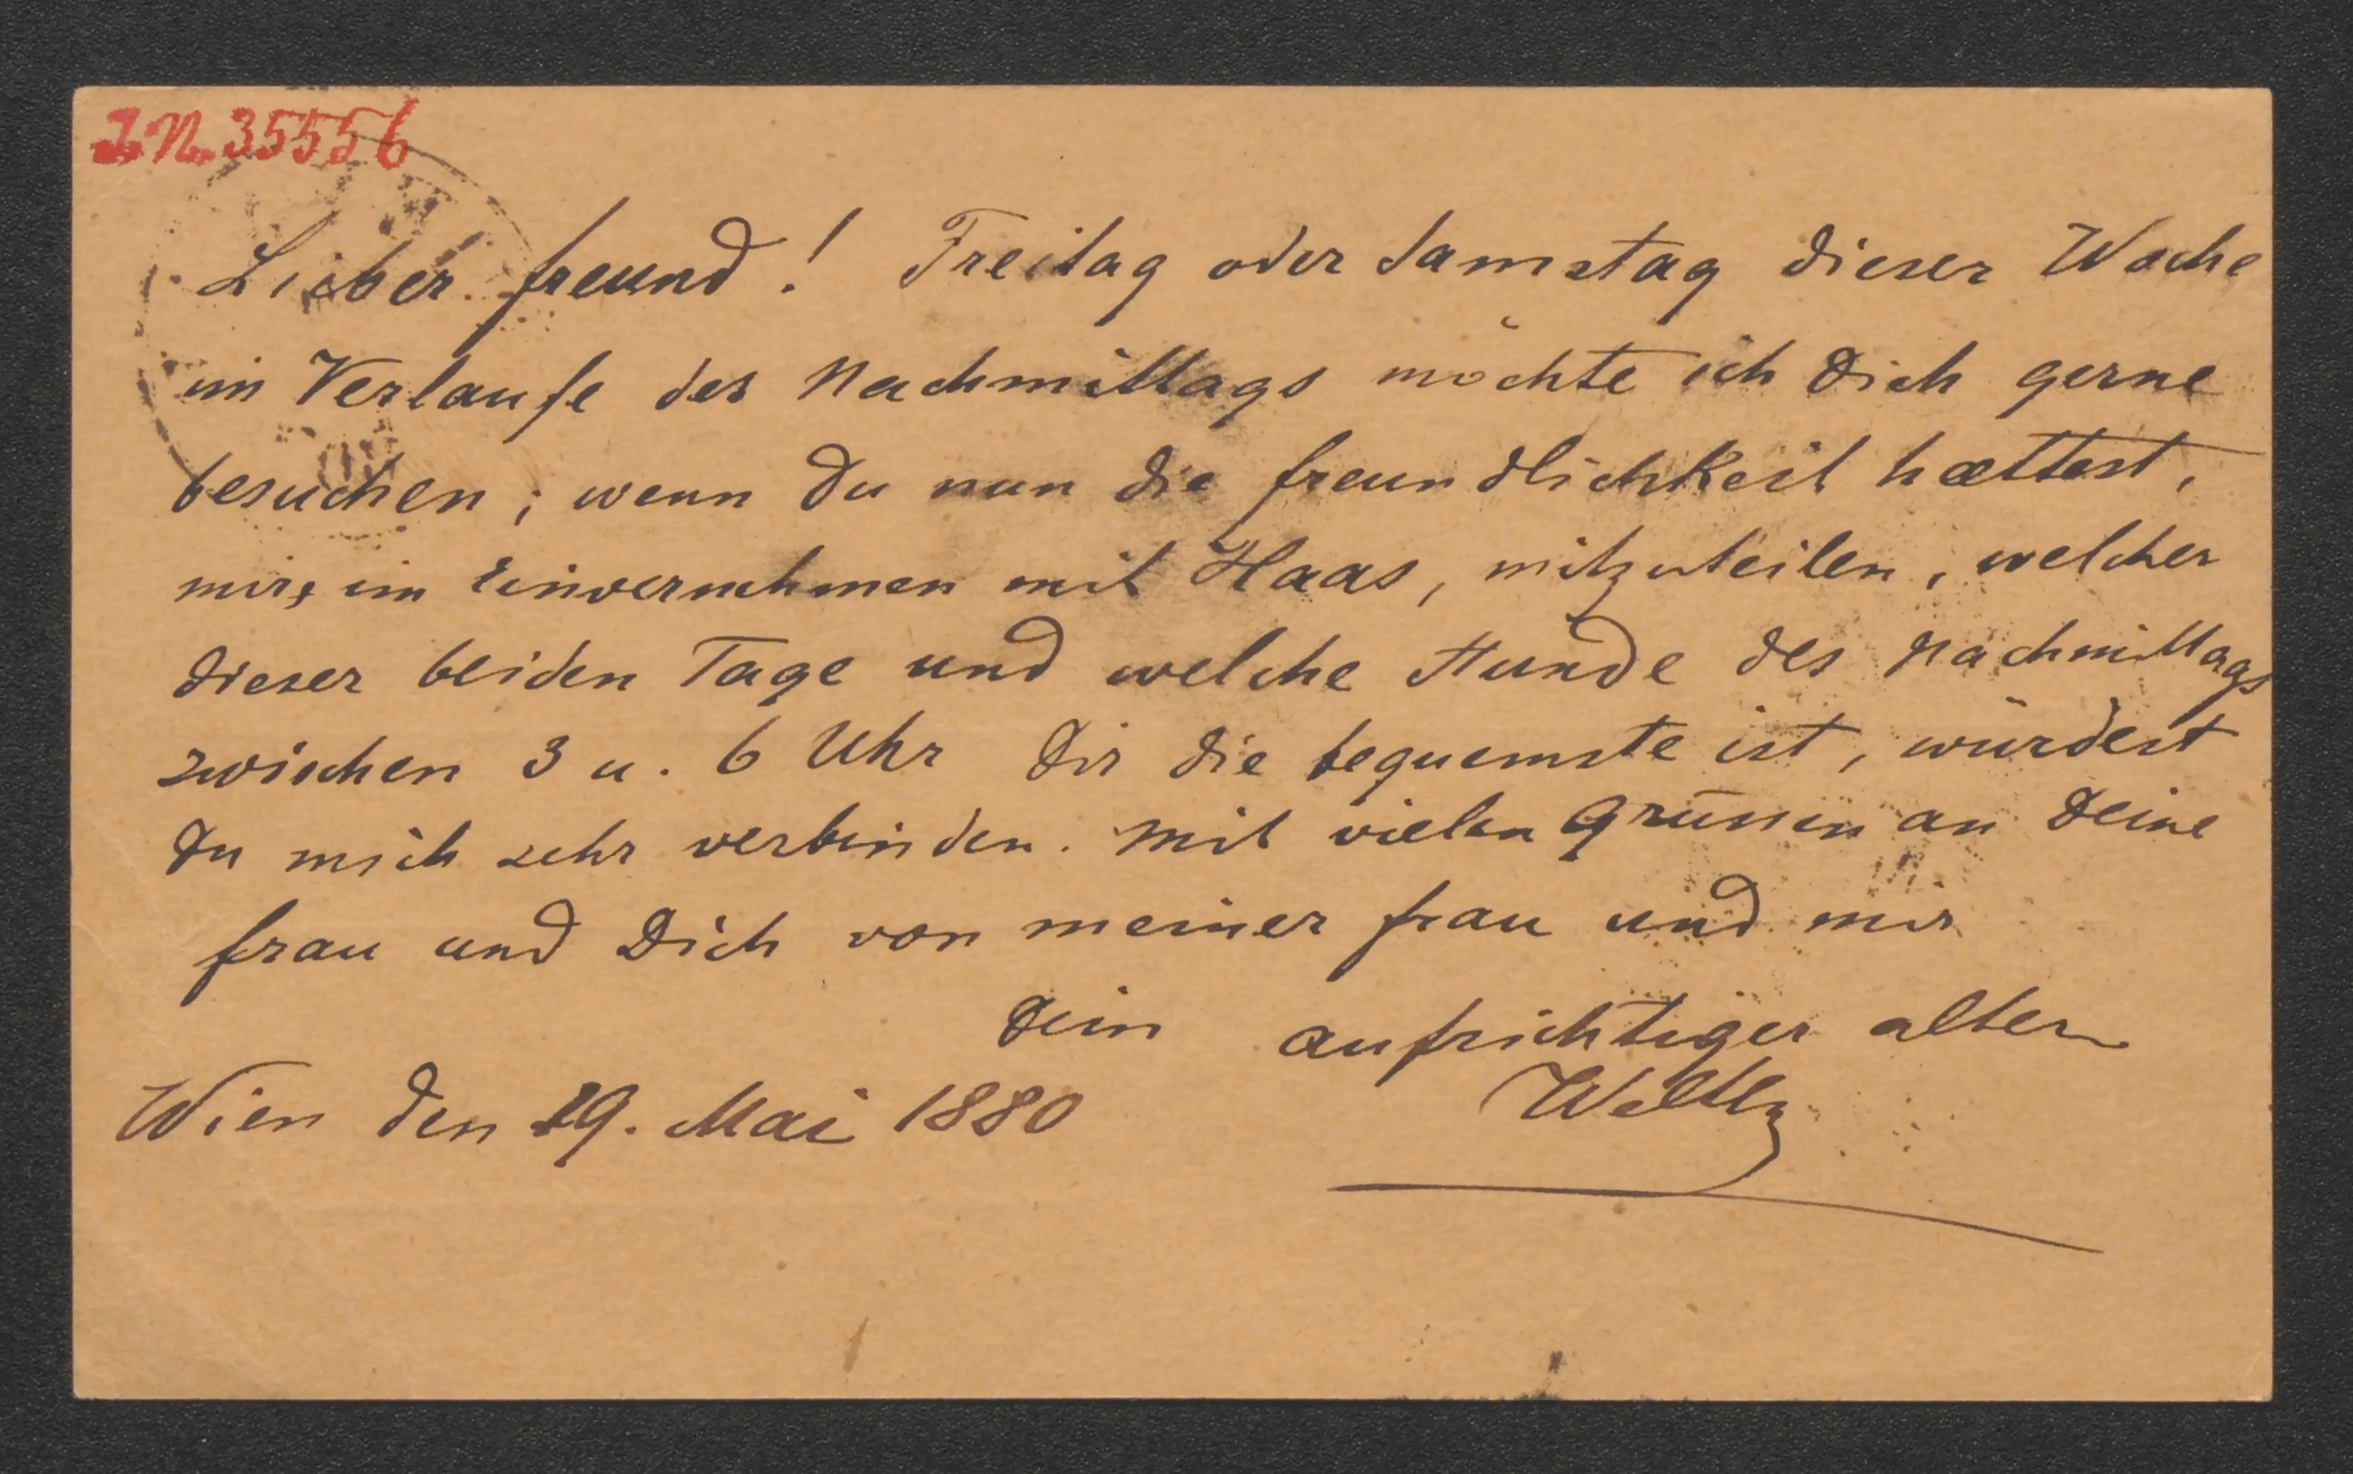 I. N. 35556
Lieber freund! Freitag oder Samstag dieser Woche
im Verlaufe des Nachmittags möchte ich Dich gerne
besuchen; wenn Du nun die freundlichkeit hættest,
mir, im Einvernehmen mit Haas, mitzuteilen, welcher
dieser beiden Tage und welche Stunde des Nachmittags
zwischen 3 u. 6 Uhr Dir die bequemste ist, würdest
Du mich sehr verbinden. Mit vielen Grüssen an Deine
frau und Dich von meiner frau und mir
Dein aufrichtiger alter
Wien den 19. Mai 1880